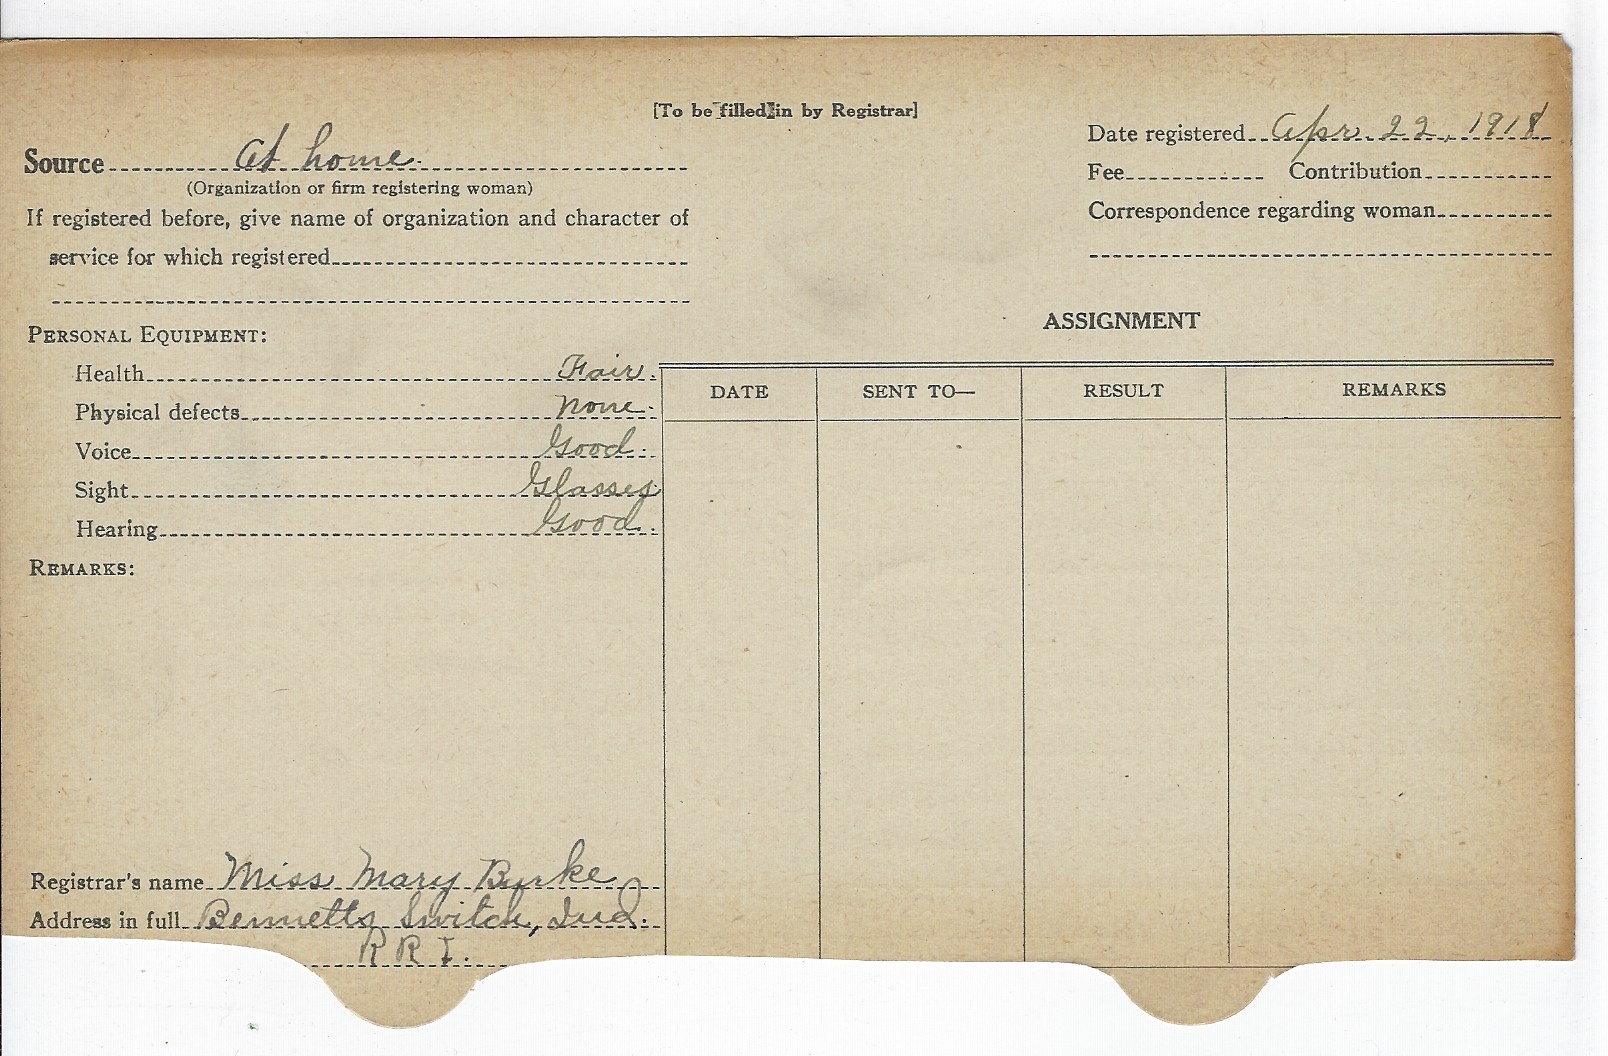 [To be filled in by Registrar]
Date registered Apr. 22, 1918
Source At home.
(Organization or firm registering woman)
Fee Contribution
If registered before, give name of organization and character of
Correspondence regarding woman
service for which registered
ASSIGNMENT
PERSONAL EQUIPMENT:
Health Fair.
Physical defects None.
Voice Good.
Sight Glasses
Hearing Good.
DATE SENT TO— RESULT REMARKS
REMARKS:
Registrar's name Miss Mary Burke
Address in full Bennetts Switch, Ind.
R R I.